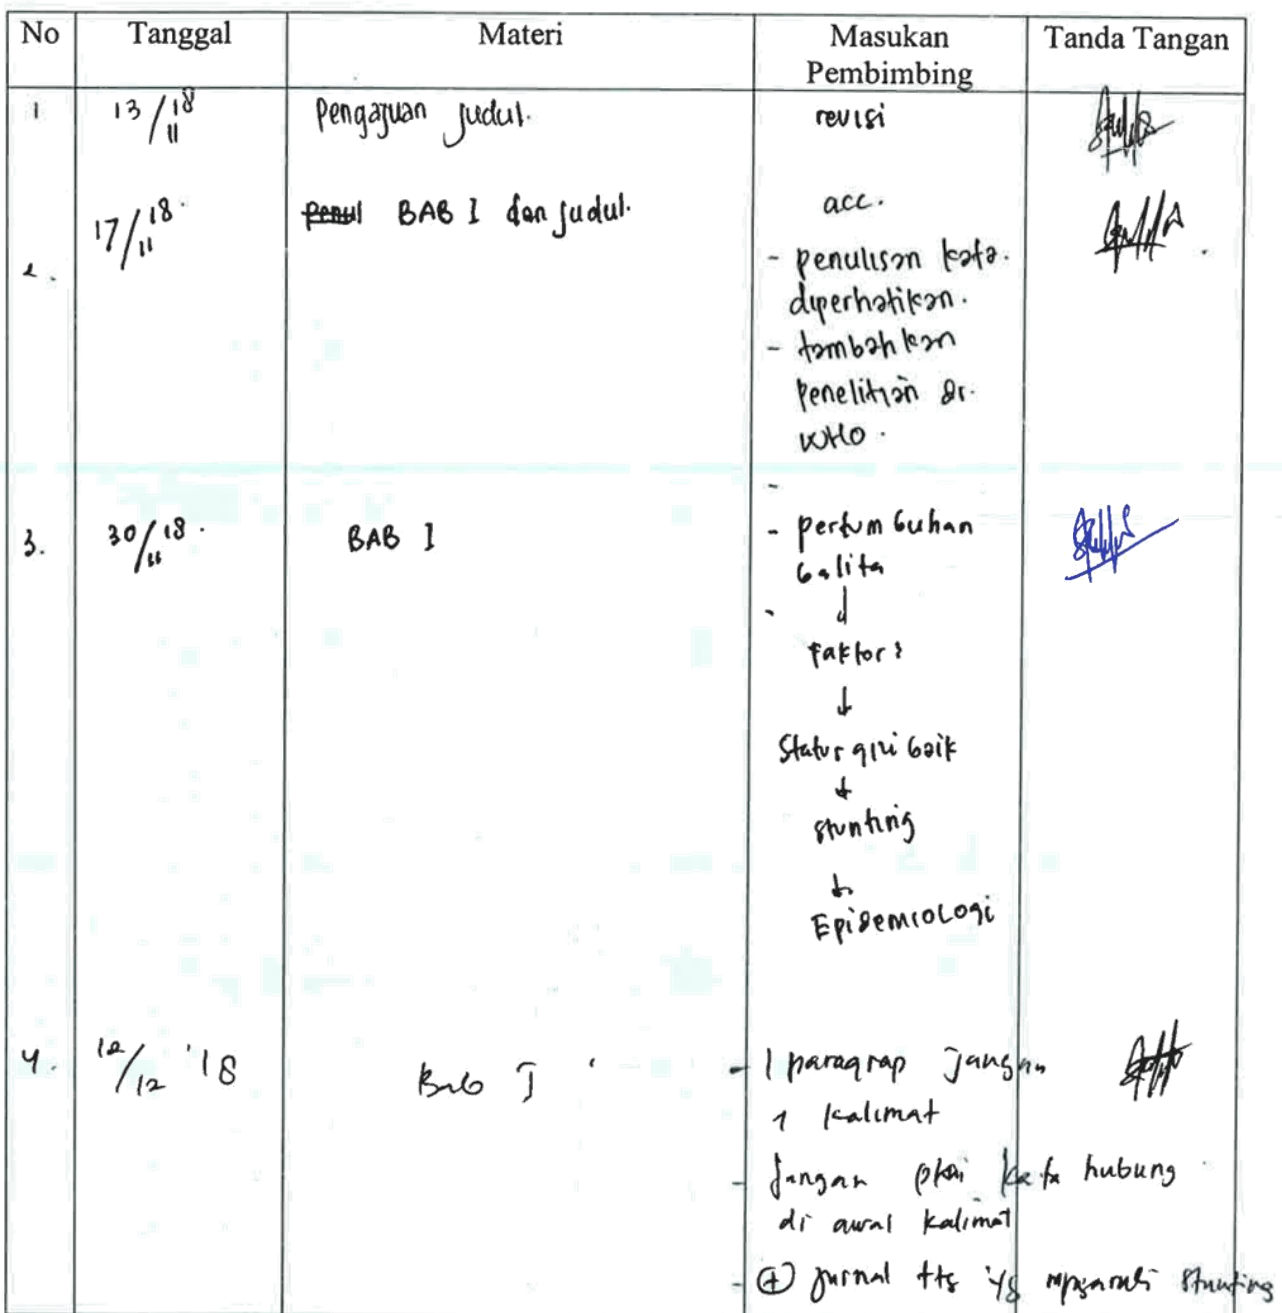 No Tanggal Materi Masukan Pembimbing Tanda Tangan
1 13/11 18 Pengajuan judul. revisi
2. 17/11 18. BAB I dan judul. acc.
- penulisan kata.
diperhatikan.
- tambahkan
penelitian dr.
WHO.
-
3. 30/11 18. BAB I - pertumbuhan
balita
↓
faktor:
↓
Status gizi baik
↓
stunting
↓
Epidemiologi
4. 12/12 '18 Bab I - 1 paragrap jangan
1 kalimat
- Jangan pkai kata hubung
di awal kalimat
- (+) jurnal ttg yg stunting